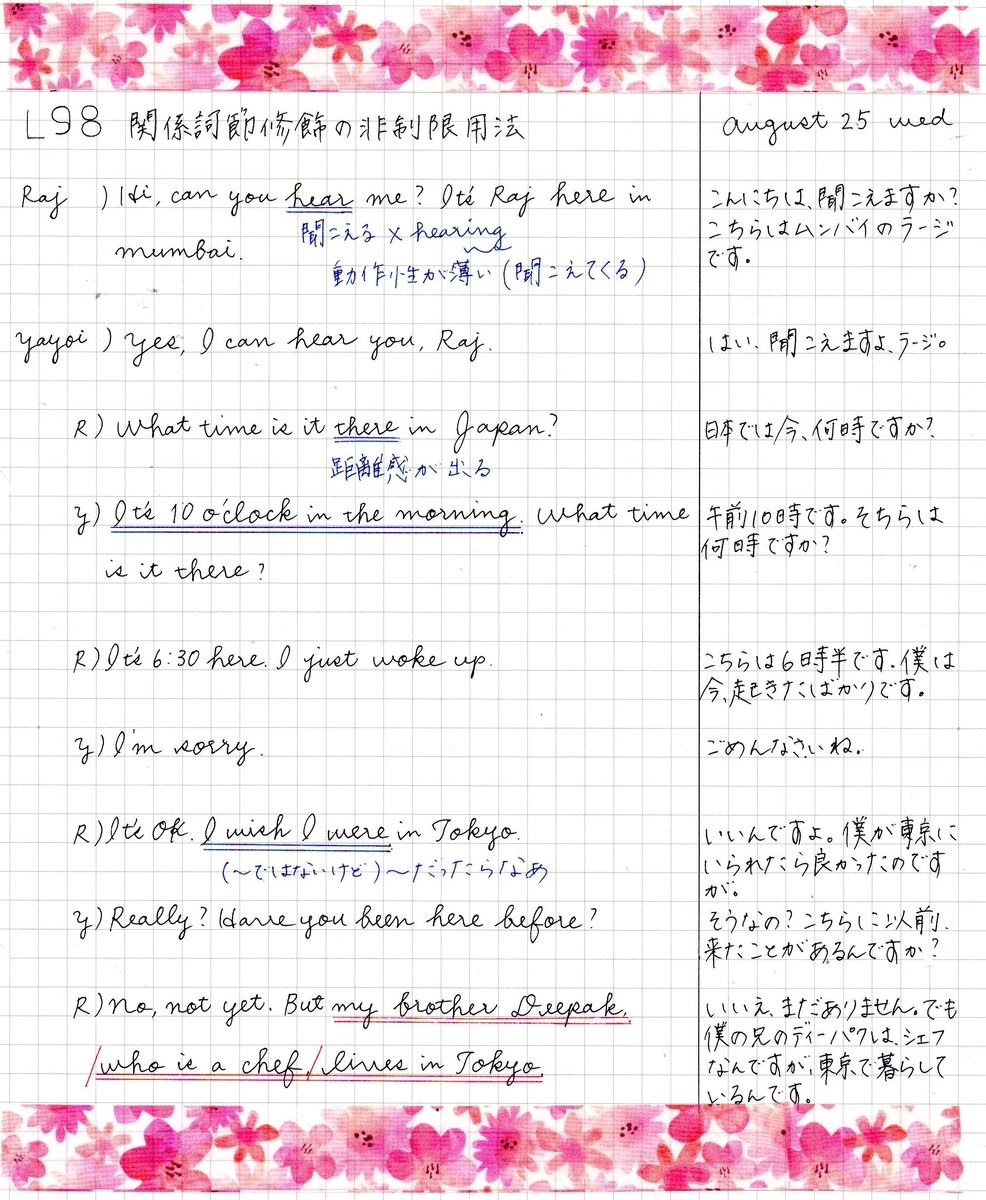 L98 関係詞節修飾の非制限用法
august 25 wed
Raj ) Hi, can you hear me? It's Raj here in
聞こえる × hearing
mumbai.
動作性が薄い (聞こえてくる)
こんにちは、聞こえますか?
こちらはムンバイのラージ
です。
yayoi ) yes, I can hear you, Raj.
はい、聞こえますよ、ラージ。
R) What time is it there in Japan?
距離感が出る
日本では今、何時ですか?
y) It's 10 o'clock in the morning. What time
is it there?
午前10時です。そちらは
何時ですか?
R) It's 6:30 here. I just woke up.
こちらは6時半です。僕は
今、起きたばかりです。
y) I'm sorry.
ごめんなさいね。
R) It's OK. I wish I were in Tokyo.
(〜ではないけど)〜だったらなぁ
いいんですよ。僕が東京に
いられたら良かったのです
が。
y) Really? Have you been here before?
そうなの?こちらに以前、
来たことがあるんですか?
R) No, not yet. But my brother Deepak,
/who is a chef,/lives in Tokyo.
いいえ、まだありません。でも
僕の兄のディーパクは、シェフ
なんですが、東京で暮らして
いるんです。